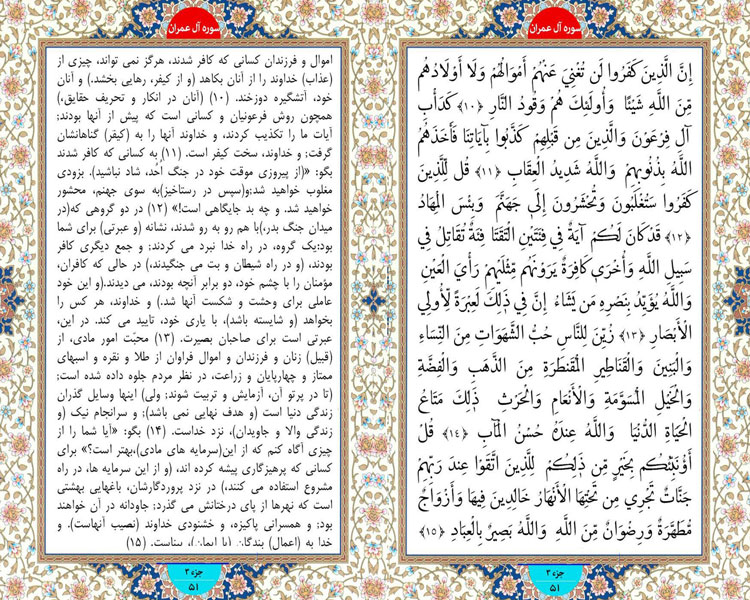 سوره آل عمران
إِنَّ الَّذِينَ كَفَرُوا لَن تُغْنِيَ عَنْهُمْ أَمْوَالُهُمْ وَلَا أَوْلَادُهُم
مِّنَ اللَّهِ شَيْئًا وَأُولَٰئِكَ هُمْ وَقُودُ النَّارِ ﴿١٠﴾ كَدَأْبِ
آلِ فِرْعَوْنَ وَالَّذِينَ مِن قَبْلِهِمْ كَذَّبُوا بِآيَاتِنَا فَأَخَذَهُمُ
اللَّهُ بِذُنُوبِهِمْ وَاللَّهُ شَدِيدُ الْعِقَابِ ﴿١١﴾ قُل لِّلَّذِينَ
كَفَرُوا سَتُغْلَبُونَ وَتُحْشَرُونَ إِلَىٰ جَهَنَّمَ وَبِئْسَ الْمِهَادُ
﴿١٢﴾ قَدْ كَانَ لَكُمْ آيَةٌ فِي فِئَتَيْنِ الْتَقَتَا فِئَةٌ تُقَاتِلُ فِي
سَبِيلِ اللَّهِ وَأُخْرَىٰ كَافِرَةٌ يَرَوْنَهُم مِّثْلَيْهِمْ رَأْيَ الْعَيْنِ
وَاللَّهُ يُؤَيِّدُ بِنَصْرِهِ مَن يَشَاءُ إِنَّ فِي ذَٰلِكَ لَعِبْرَةً لِّأُولِي
الْأَبْصَارِ ﴿١٣﴾ زُيِّنَ لِلنَّاسِ حُبُّ الشَّهَوَاتِ مِنَ النِّسَاءِ
وَالْبَنِينَ وَالْقَنَاطِيرِ الْمُقَنطَرَةِ مِنَ الذَّهَبِ وَالْفِضَّةِ
وَالْخَيْلِ الْمُسَوَّمَةِ وَالْأَنْعَامِ وَالْحَرْثِ ذَٰلِكَ مَتَاعُ
الْحَيَاةِ الدُّنْيَا وَاللَّهُ عِندَهُ حُسْنُ الْمَآبِ ﴿١٤﴾ قُلْ
أَؤُنَبِّئُكُم بِخَيْرٍ مِّن ذَٰلِكُمْ لِلَّذِينَ اتَّقَوْا عِندَ رَبِّهِمْ
جَنَّاتٌ تَجْرِي مِن تَحْتِهَا الْأَنْهَارُ خَالِدِينَ فِيهَا وَأَزْوَاجٌ
مُّطَهَّرَةٌ وَرِضْوَانٌ مِّنَ اللَّهِ وَاللَّهُ بَصِيرٌ بِالْعِبَادِ ﴿١٥﴾
جزء ٣
٥١
سوره آل عمران
اموال و فرزندان کسانی که کافر شدند، هرگز نمی تواند، چیزی از
(عذاب) خداوند را از آنان بکاهد (و از کیفر، رهایی بخشد.) و آنان
خود، آتشگیره دوزخند. (۱۰) (آنان در انکار و تحریف حقایق،)
همچون روش فرعونیان و کسانی است که پیش از آنها بودند;
آیات ما را تکذیب کردند، و خداوند آنها را به (کیفر) گناهانشان
گرفت; و خداوند، سخت کیفر است. (۱۱) به کسانی که کافر شدند
بگو: «(از پیروزی موقت خود در جنگ اُحد، شاد نباشید). بزودی
مغلوب خواهید شد;و(سپس در رستاخیز)به سوی جهنم، محشور
خواهید شد. و چه بد جایگاهی است!» (۱۲) در دو گروهی که(در
میدان جنگ بدر،)با هم رو به رو شدند، نشانه (و عبرتی) برای شما
بود:یک گروه، در راه خدا نبرد می کردند; و جمع دیگری کافر
بودند، (و در راه شیطان و بت می جنگیدند،) در حالی که کافران،
مؤمنان را با چشم خود، دو برابر آنچه بودند، می دیدند.(و این خود
عاملی برای وحشت و شکست آنها شد.) و خداوند، هر کس را
بخواهد (و شایسته باشد)، با یاری خود، تایید می کند. در این،
عبرتی است برای صاحبان بصیرت. (۱۳) محبّت امور مادی، از
(قبیل) زنان و فرزندان و اموال فراوان از طلا و نقره و اسبهای
ممتاز و چهارپایان و زراعت، در نظر مردم جلوه داده شده است;
(تا در پرتو آن، آزمایش و تربیت شوند; ولی) اینها وسایل گذران
زندگی دنیا است (و هدف نهایی نمی باشد); و سرانجام نیک (و
زندگی والا و جاویدان)، نزد خداست. (۱۴) بگو: «آیا شما را از
چیزی آگاه کنم که از این(سرمایه های مادی)،بهتر است؟» برای
کسانی که پرهیزگاری پیشه کرده اند، (و از این سرمایه ها، در راه
مشروع استفاده می کنند،) در نزد پروردگارشان، باغهایی بهشتی
است که نهرها از پای درختانش می گذرد; جاودانه در آن خواهند
بود; و همسرانی پاکیزه، و خشنودی خداوند (نصیب آنهاست). و
خدا به (اعمال) بندگان (با ایمان)، بیناست. (۱۵)
جزء ٣
٥١